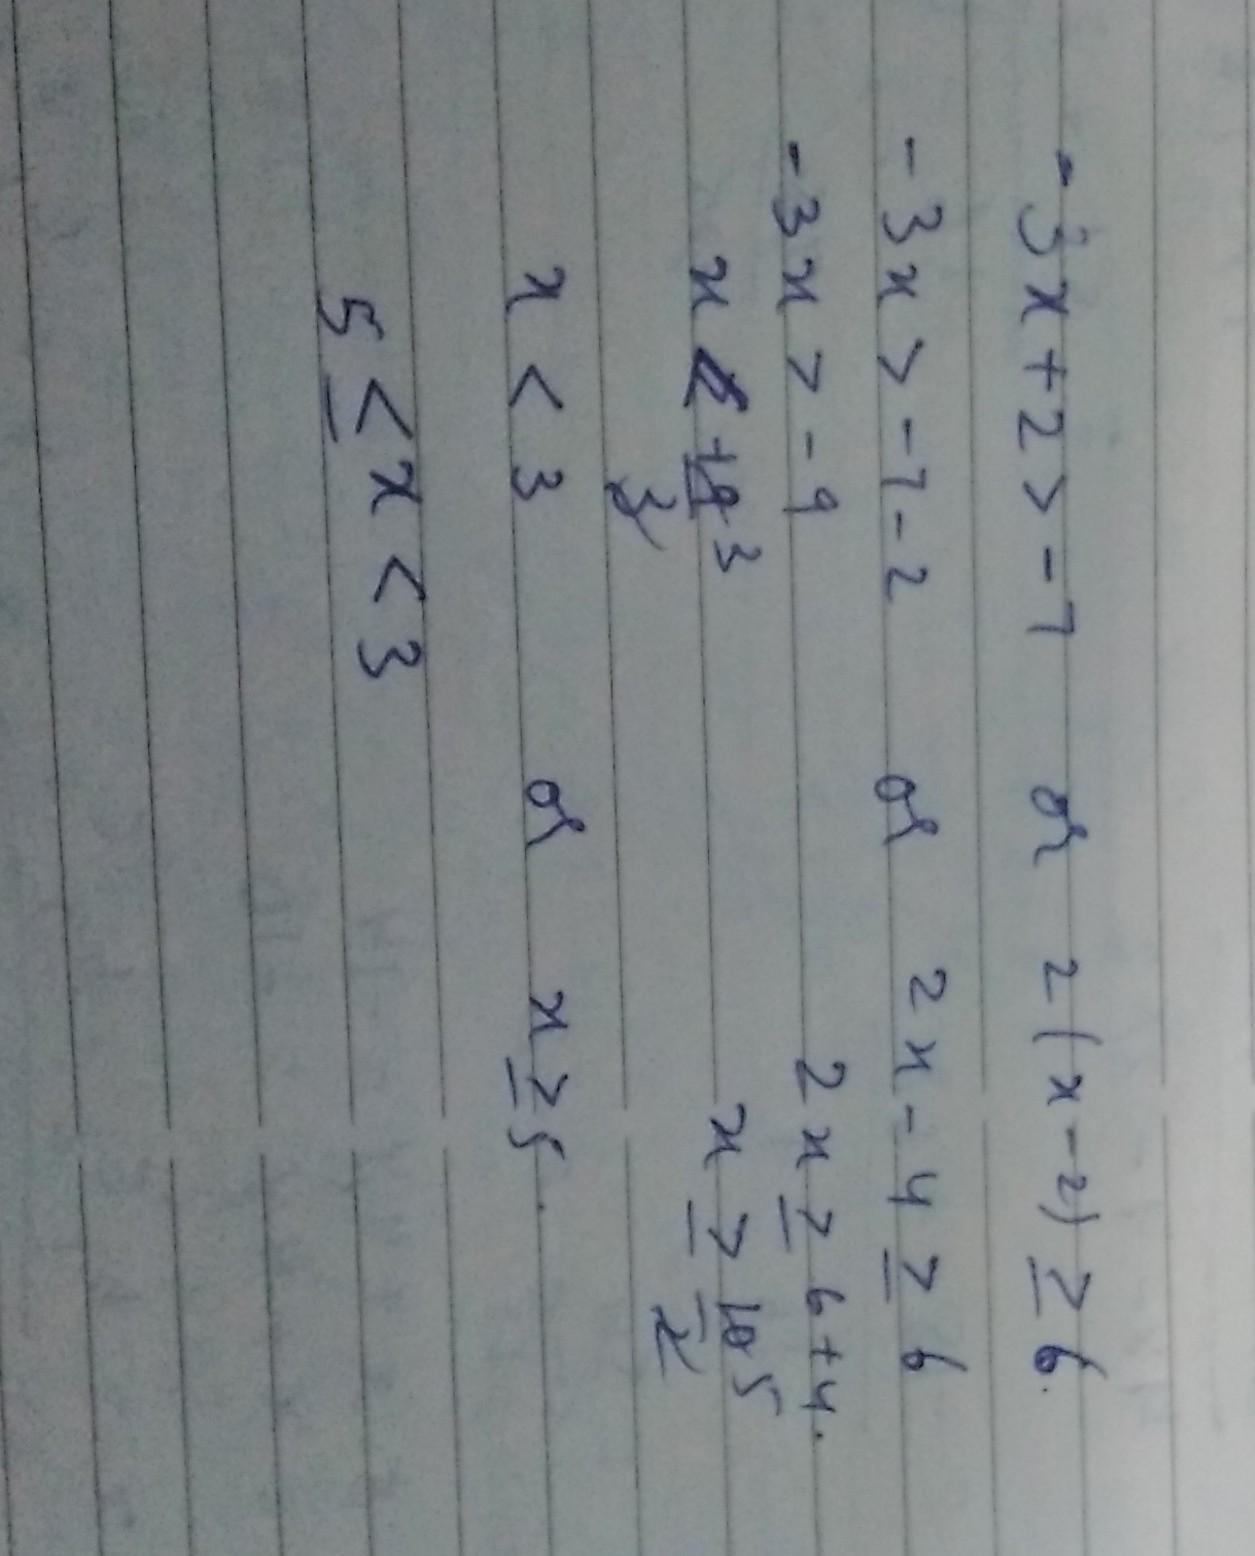 -3x+2 > -7 or 2(x-2) ≥ 6.
-3x > -7-2 or 2x-4 ≥ 6
-3x > -9 2x ≥ 6+4.
x < +9/3 3 x ≥ 10/2 5
x < 3 or x ≥ 5.
5 ≤ x < 3